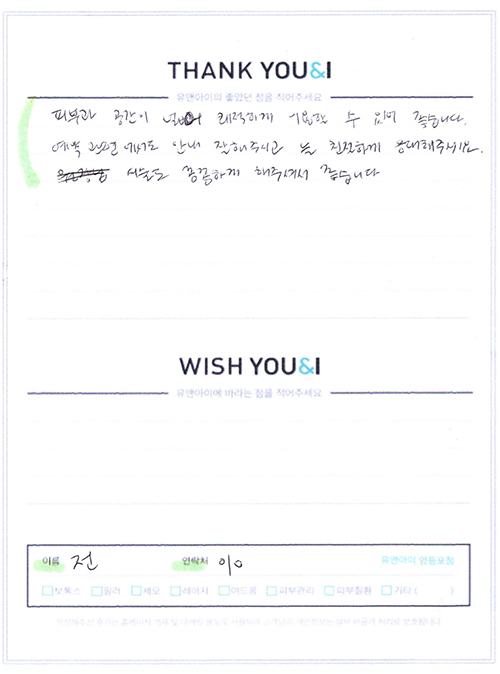 THANK YOU&I
유앤아이의 좋았던 점을 적어주세요
피부과 공간이 넓어 쾌적하게 이용할 수 있어 좋습니다.
예약 관련 에서도 안내 잘해주시고 늘 친절하게 응대해주시고.
시술도 꼼꼼하게 해주셔서 좋습니다
WISH YOU&I
유앤아이에 바라는 점을 적어주세요
이름 전 연락처 010 유앤아이 영등포점
보톡스 필러 제모 레이저 여드름 피부관리 피부질환 기타 ( )